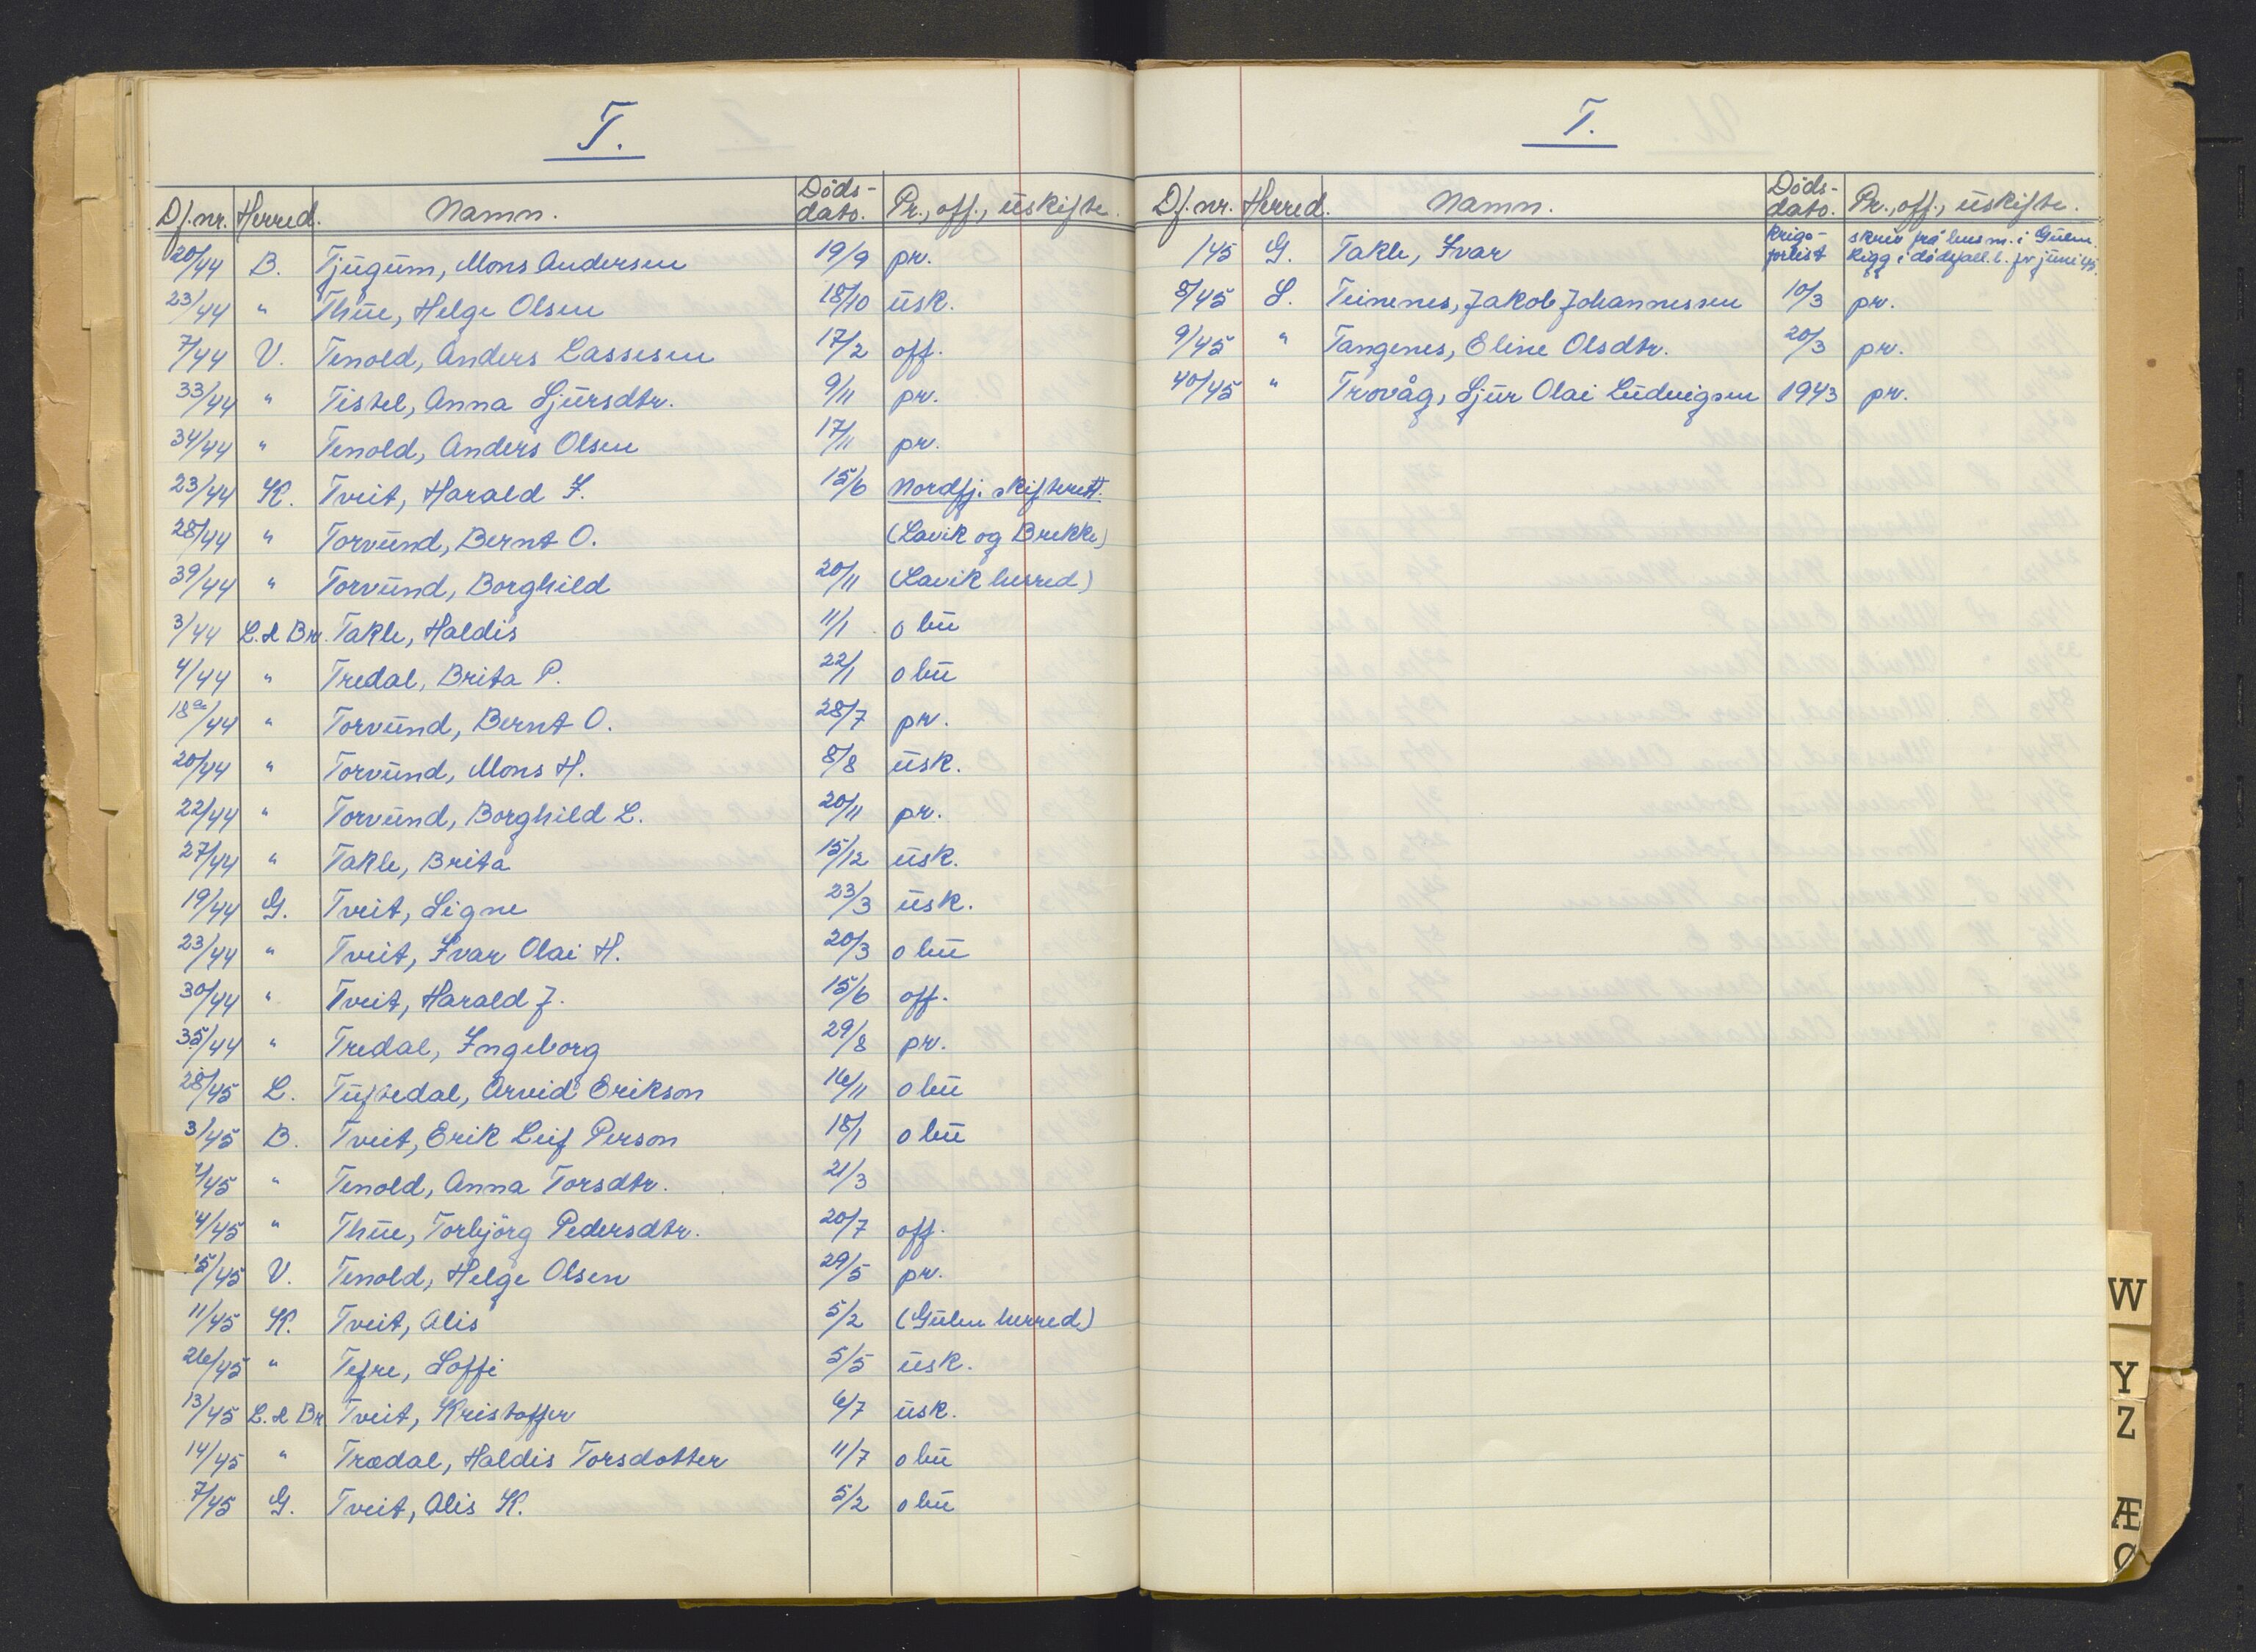 T.
Df.nr. Herred. Namn. Døds-dato. Pr., off., uskifte.
20/44 B. Tjugum, Mons Andersen 19/9 pr.
23/44 " Thue, Helge Olsen 18/10 usk.
7/44 V. Tenold, Anders Lassesen 17/2 off.
33/44 " Tistel, Anna Sjursdtr. 9/11 pr.
34/44 " Tenold, Anders Olsen 17/11 pr.
23/44 K. Tveit, Harald J. 15/6 Nordfj. skifterett.
28/44 " Torvund, Bernt O. (Lavik og Brekke)
39/44 " Torvund, Borghild 20/11 (Lavik herred)
3/44 L. & Br. Takle, Haldis 11/1 o bu
4/44 " Tredal, Brita P. 22/1 o bu
18a/44 " Torvund, Bernt O. 28/7 pr.
20/44 " Torvund, Mons H. 8/8 usk.
22/44 " Torvund, Borghild L. 20/11 pr.
27/44 " Takle, Brita 15/12 usk.
19/44 G. Tveit, Signe 23/3 usk.
23/44 " Tveit, Ivar Olai H. 20/3 o bu
30/44 " Tveit, Harald J. 15/6 off.
35/44 " Tredal, Ingeborg 29/8 pr.
28/45 L. Tuftedal, Arvid Erikson 16/11 o bu
3/45 B. Tveit, Erik Leif Person 18/1 o bu
7/45 " Tenold, Anna Torsdtr. 21/3
14/45 " Thue, Torbjörg Pedersdtr. 20/7 off.
15/45 V. Tenold, Helge Olsen 29/5 pr.
11/45 K. Tveit, Alis 5/2 (Gulen herred)
26/45 " Tefre, Soffi 5/5 usk.
13/45 L. & Br. Tveit, Kristoffer 6/7 usk.
14/45 " Trædal, Haldis Torsdotter 11/7 o bu
7/45 G. Tveit, Alis K. 5/2 o bu
T.
Df.nr. Herred. Namn. Døds-dato. Pr., off., uskifte.
/45 G. Takle, Ivar krigs-forlist skriv frå lensm. i Gulen ligg i dødsfall.l. for juni 45.
8/45 S. Teinenes, Jakob Johannessen 10/3 pr.
9/45 " Tangenes, Eline Olsdtr. 20/3 pr.
40/45 " Trovåg, Sjur Olai Ludvigsen 1943 pr.
W
Y
Z
Æ
Ø